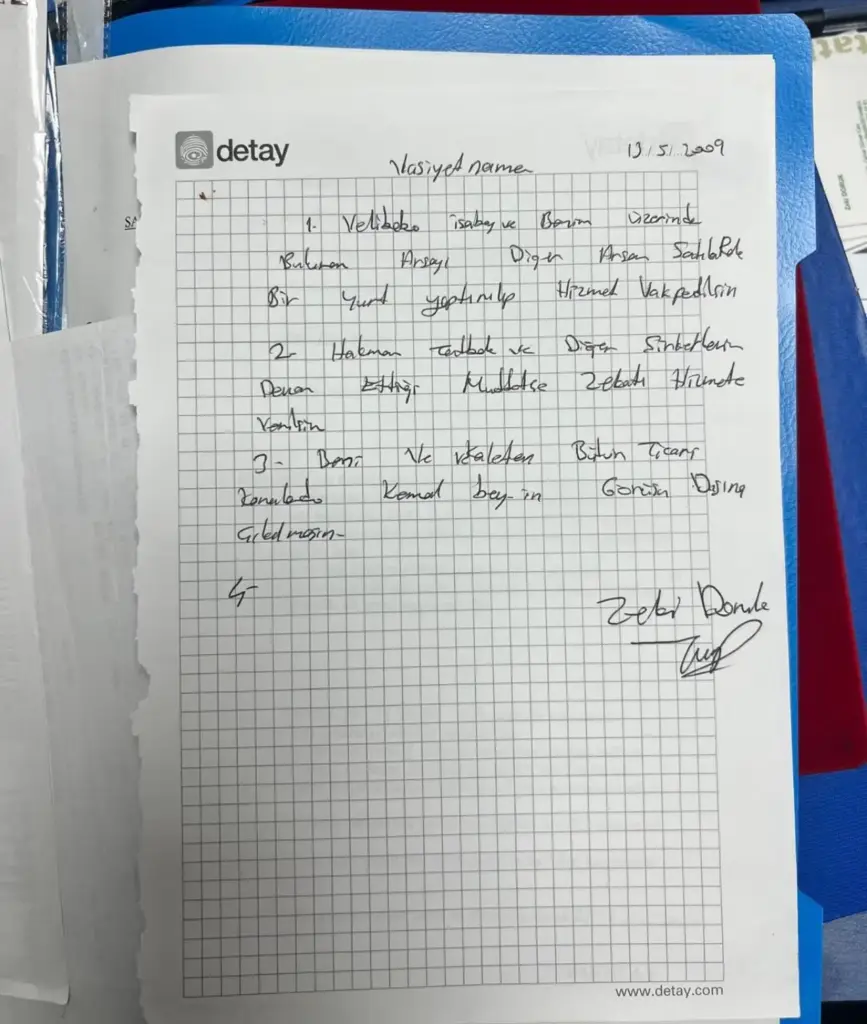 detay
13/5/2009
Vasiyet name
1. Velibaba isabey ve Benim üzerinde
Bulunan Arsayı Diğer Arsan
Bir yurt yaptırılıp Hizmet Vakpedilsin
2- Hakman ve Diğer Sirketlerin
Devam Ettiği Muddetce Zekatı Hizmete
Verilsin
3- Beni Ve vekaleten Bütün Ticari
Konularda Kemal bey-in Görüsü Dışına
Cıkılmasın-
4-
Zeki
www.detay.com